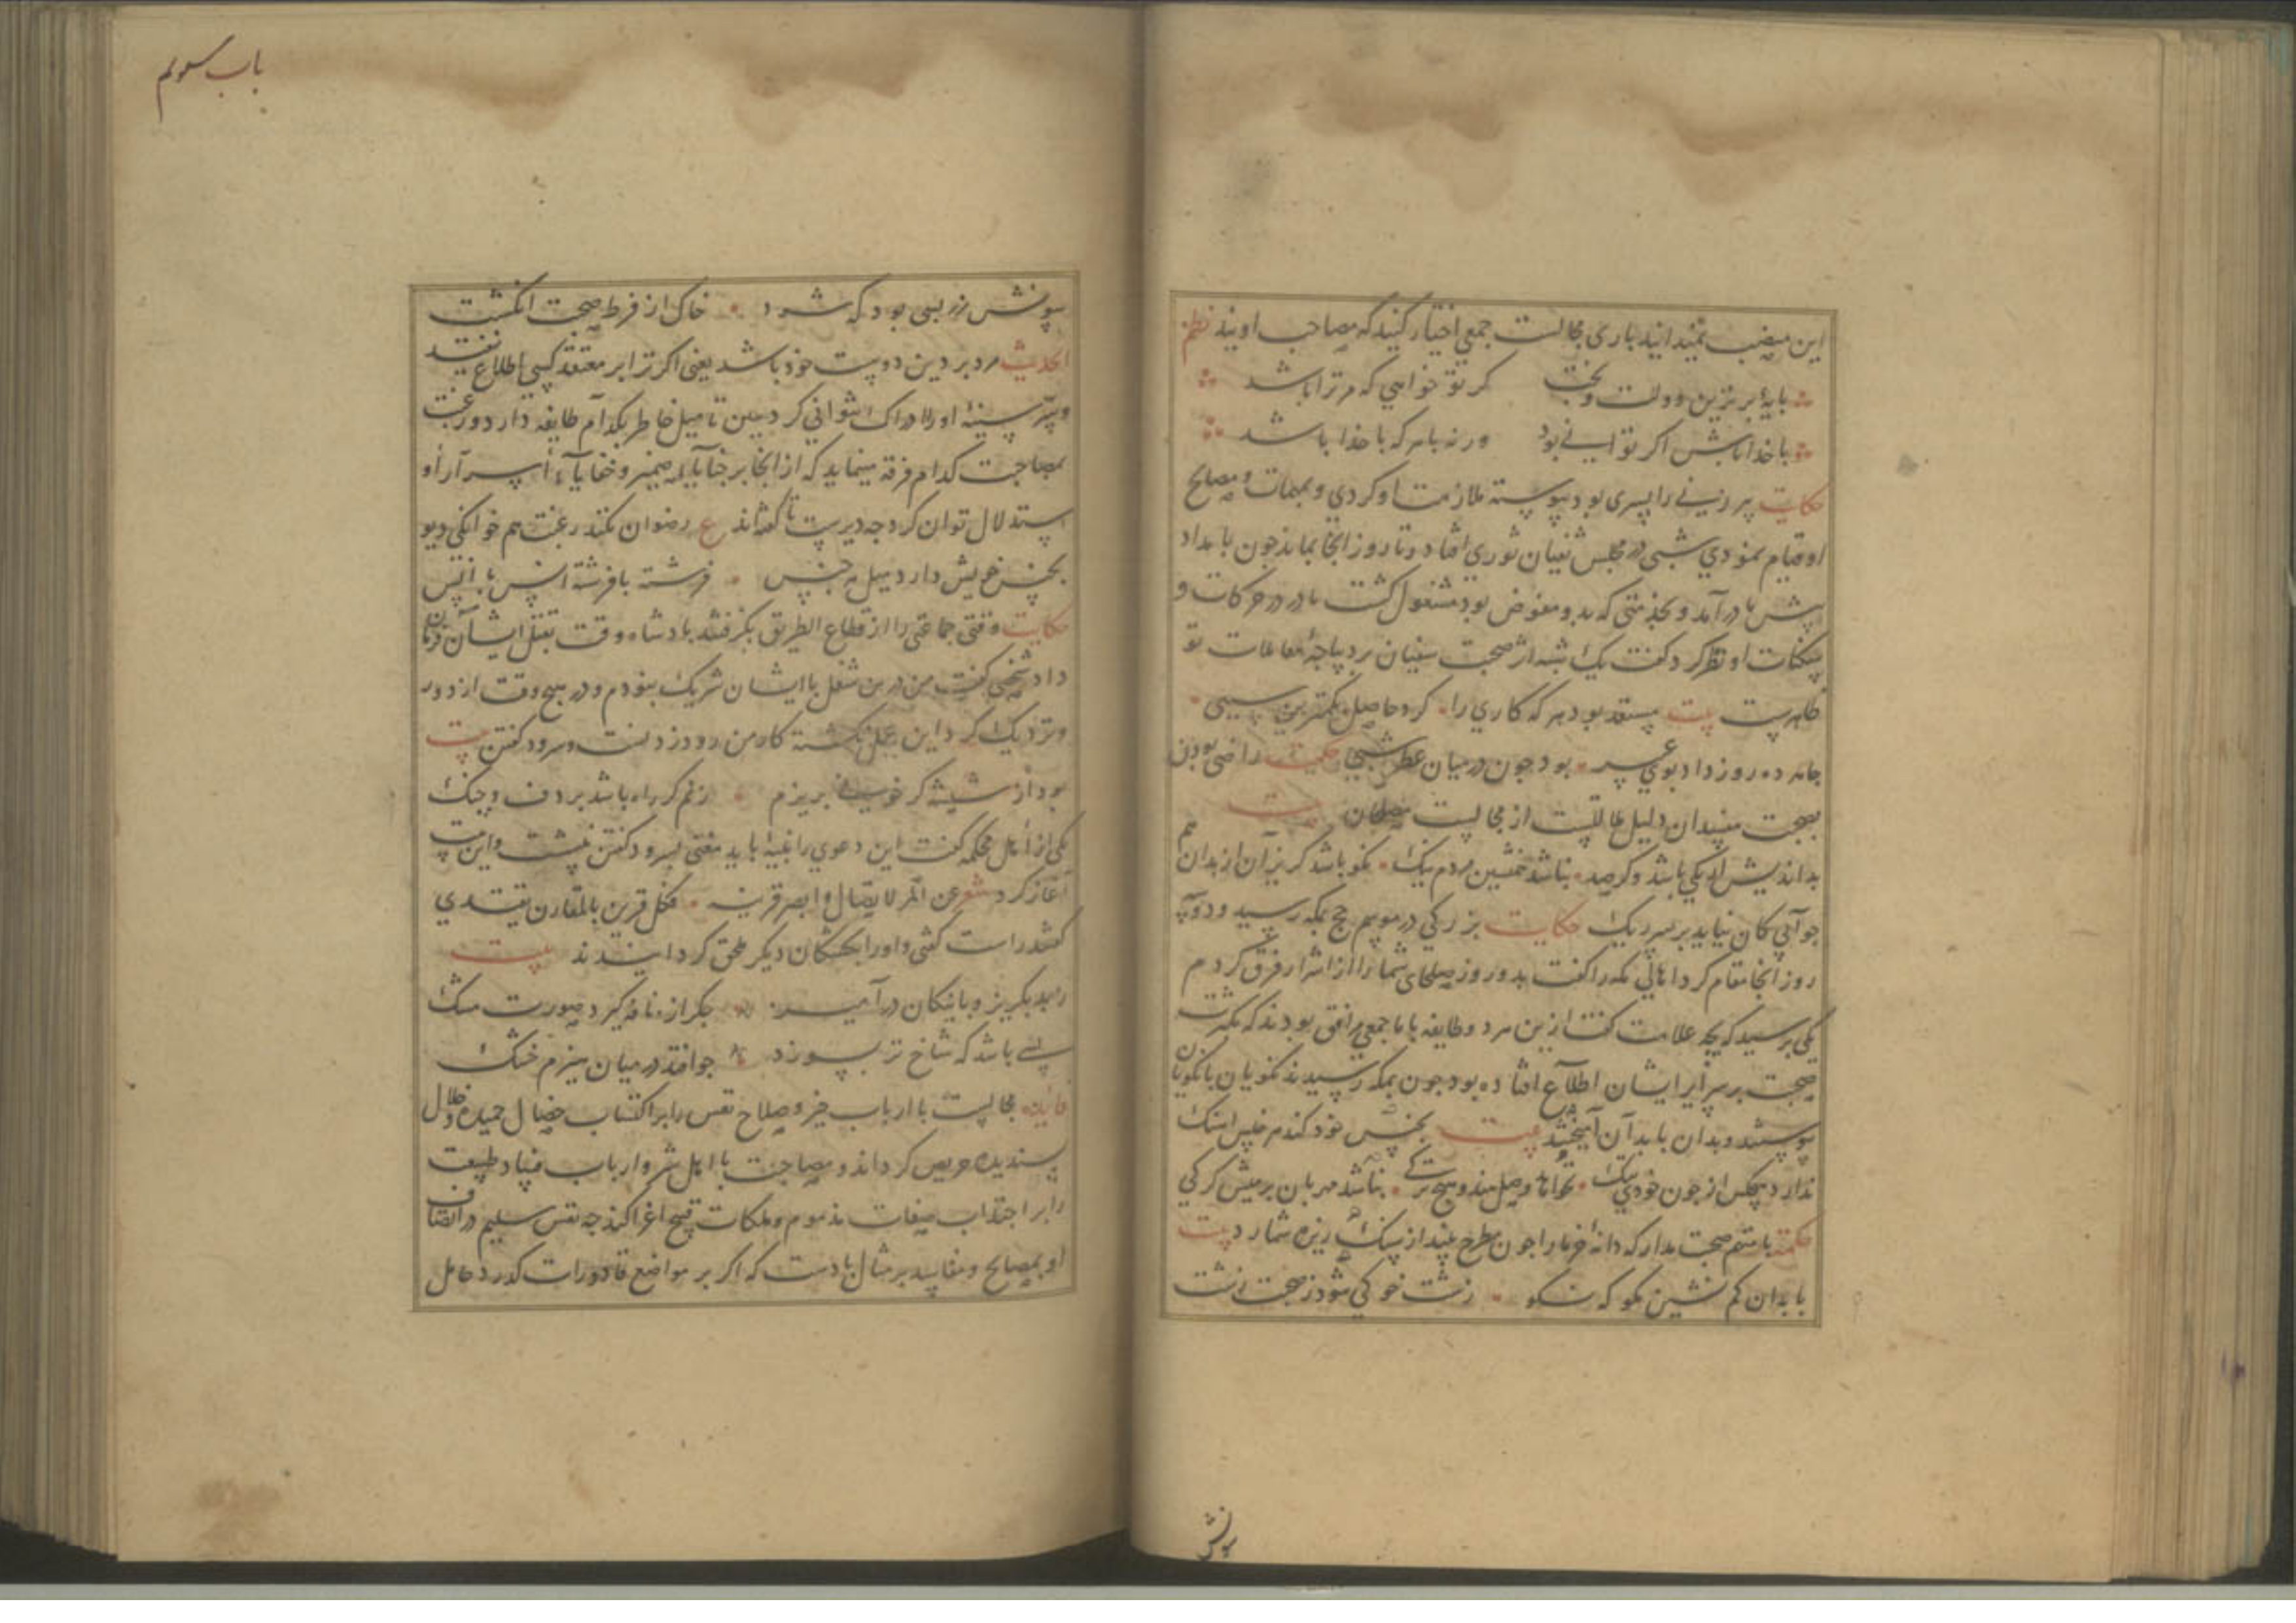 این منصب نمیدانید باری مجالست جمعی اختیار کنید که مصاحب اویند نظم
پایهٔ برترین دولت وبخت کر تو خواهی که مر ترا باشد
با خدا باش اکر توانی بود ورنه با هر که با خدا باشد
حکایت پیر زنی را پسری بود پیوسته ملازمت او کردی و بمهمات و مصالح
او قیام نمودی شبی در مجلس سفیان ثوری افتاد و تا روز انجا بماند جون بامداد
پیش مادر آمد و بخدمتی که بدو مفوض بود مشغول کشت مادر در حرکات و
سکنات او نظر کرد کفت یک شبه اثر صحبت سفیان بر دیباجهٔ معاملات تو
ظاهرست بیت مستعد بود هر که کاری را کرد حاصل بکمترین سببی
جامه ده روز داد بوی عبیر بود جون در میان عطر شبی حکمت راضی بودن
بصحبت مفسدان دلیل عاللست از مجالست مصلحان بیت
بداندیش ار یکی باشد وکر صد نباشد همنشین مردم نیک نکو باشد کریزان از بدان هم
جو آبی کان نیاید بر سر ریک حکایت بزرکی در موسم حج بمکه رسید و دو سه
روز انجا مقام کرد اهالی مکه را کفت بدو روز صلحای شما را از اشرار فرق کردم
یکی پرسید که بچه علامت کفت ازین هر دو طایفه با ما جمعی مرافق بودند که بکثرت
صحبت بر سرایر ایشان اطلاع افتاده بود جون بمکه رسیدند نکویان با نکویان
پیوستند و بدان با بدان آمیختند بیت بجنس خود کند هر جنس اهنک
ندارد هیچکس از جون خودی ننک نباشد مهربان بر میش کرکی
حکمة با متهم صحبت مدار که دانهٔ خرما را جون بطرح بیندازند سنک ریزه شمارد بیت
با بدان کم نشین نکو که نکو زشت خو کی شود ز صحبت زشت
سوزنش
باب سوم
سوزنش زر بسی بود که شود خاک از فرط صحبت انکشت
الحدیث مرد بر دین دوست خود باشد یعنی اکر ترا بر معتقد کسی اطلاع نیفتد
و سر سینهٔ او را ادراک نتوانی کرد ببین تا میل خاطر بکدام طایفه دارد و رغبت
بمصاحبت کدام فرقه مینماید که از انجا بر خبایاء ضمیر و خفایاء اسرار او
استدلال توان کرد جه دیرست تا کفته‌اند ع رضوان نکند رغبت هم خوانکی دیو
بجنس خویش دارد میل هر جنس فرشته با فرشته انس با انس
حکایت وقتی جماعتی را از قطاع الطریق بکرفتند بادشاه وقت بقتل ایشان فرمان
داد شخصی کفت من درین شغل با ایشان شریک نبودم و در هیچ وقت از دور
ونزدیک کرد این عمل نکشته کار من رود زدنست و سرود کفتن بیت
بود از شیشه کر خونی بریزم زنم کر راه باشد بر دف و چنک
یکی از اهل محکمه کفت این دعوی را بینهٔ باید مغنی بسرود کفتن نشست و این بیت
آغاز کرد شعر عن المرء لا یسال و ابصر قرینه فکل قرین بالمقارن یقتدی
کفتند راست کفتی و او را بکشتکان دیکر ملحق کردانیدند بیت
ز بد بکریز و با نیکان درآمیز جکر از نافه کیرد صورت مشک
بسی باشد که شاخ تر بسوزد جو افتد در میان هیزم خشک
فایده مجالست با ارباب خیر و صلاح نفس را بر اکتساب خصال حمیده و خلال
پسندیده حریص کرداند و مصاحبت با اهل شر و ارباب فساد طبیعت
را بر اجتذاب صفات مذموم و ملکات قبیح اغرا کند جه نفس سلیم در اتصاف
او بمصالح و مفاسد بر مثال بادست که اکر بر مواضع قاذورات کذرد حامل